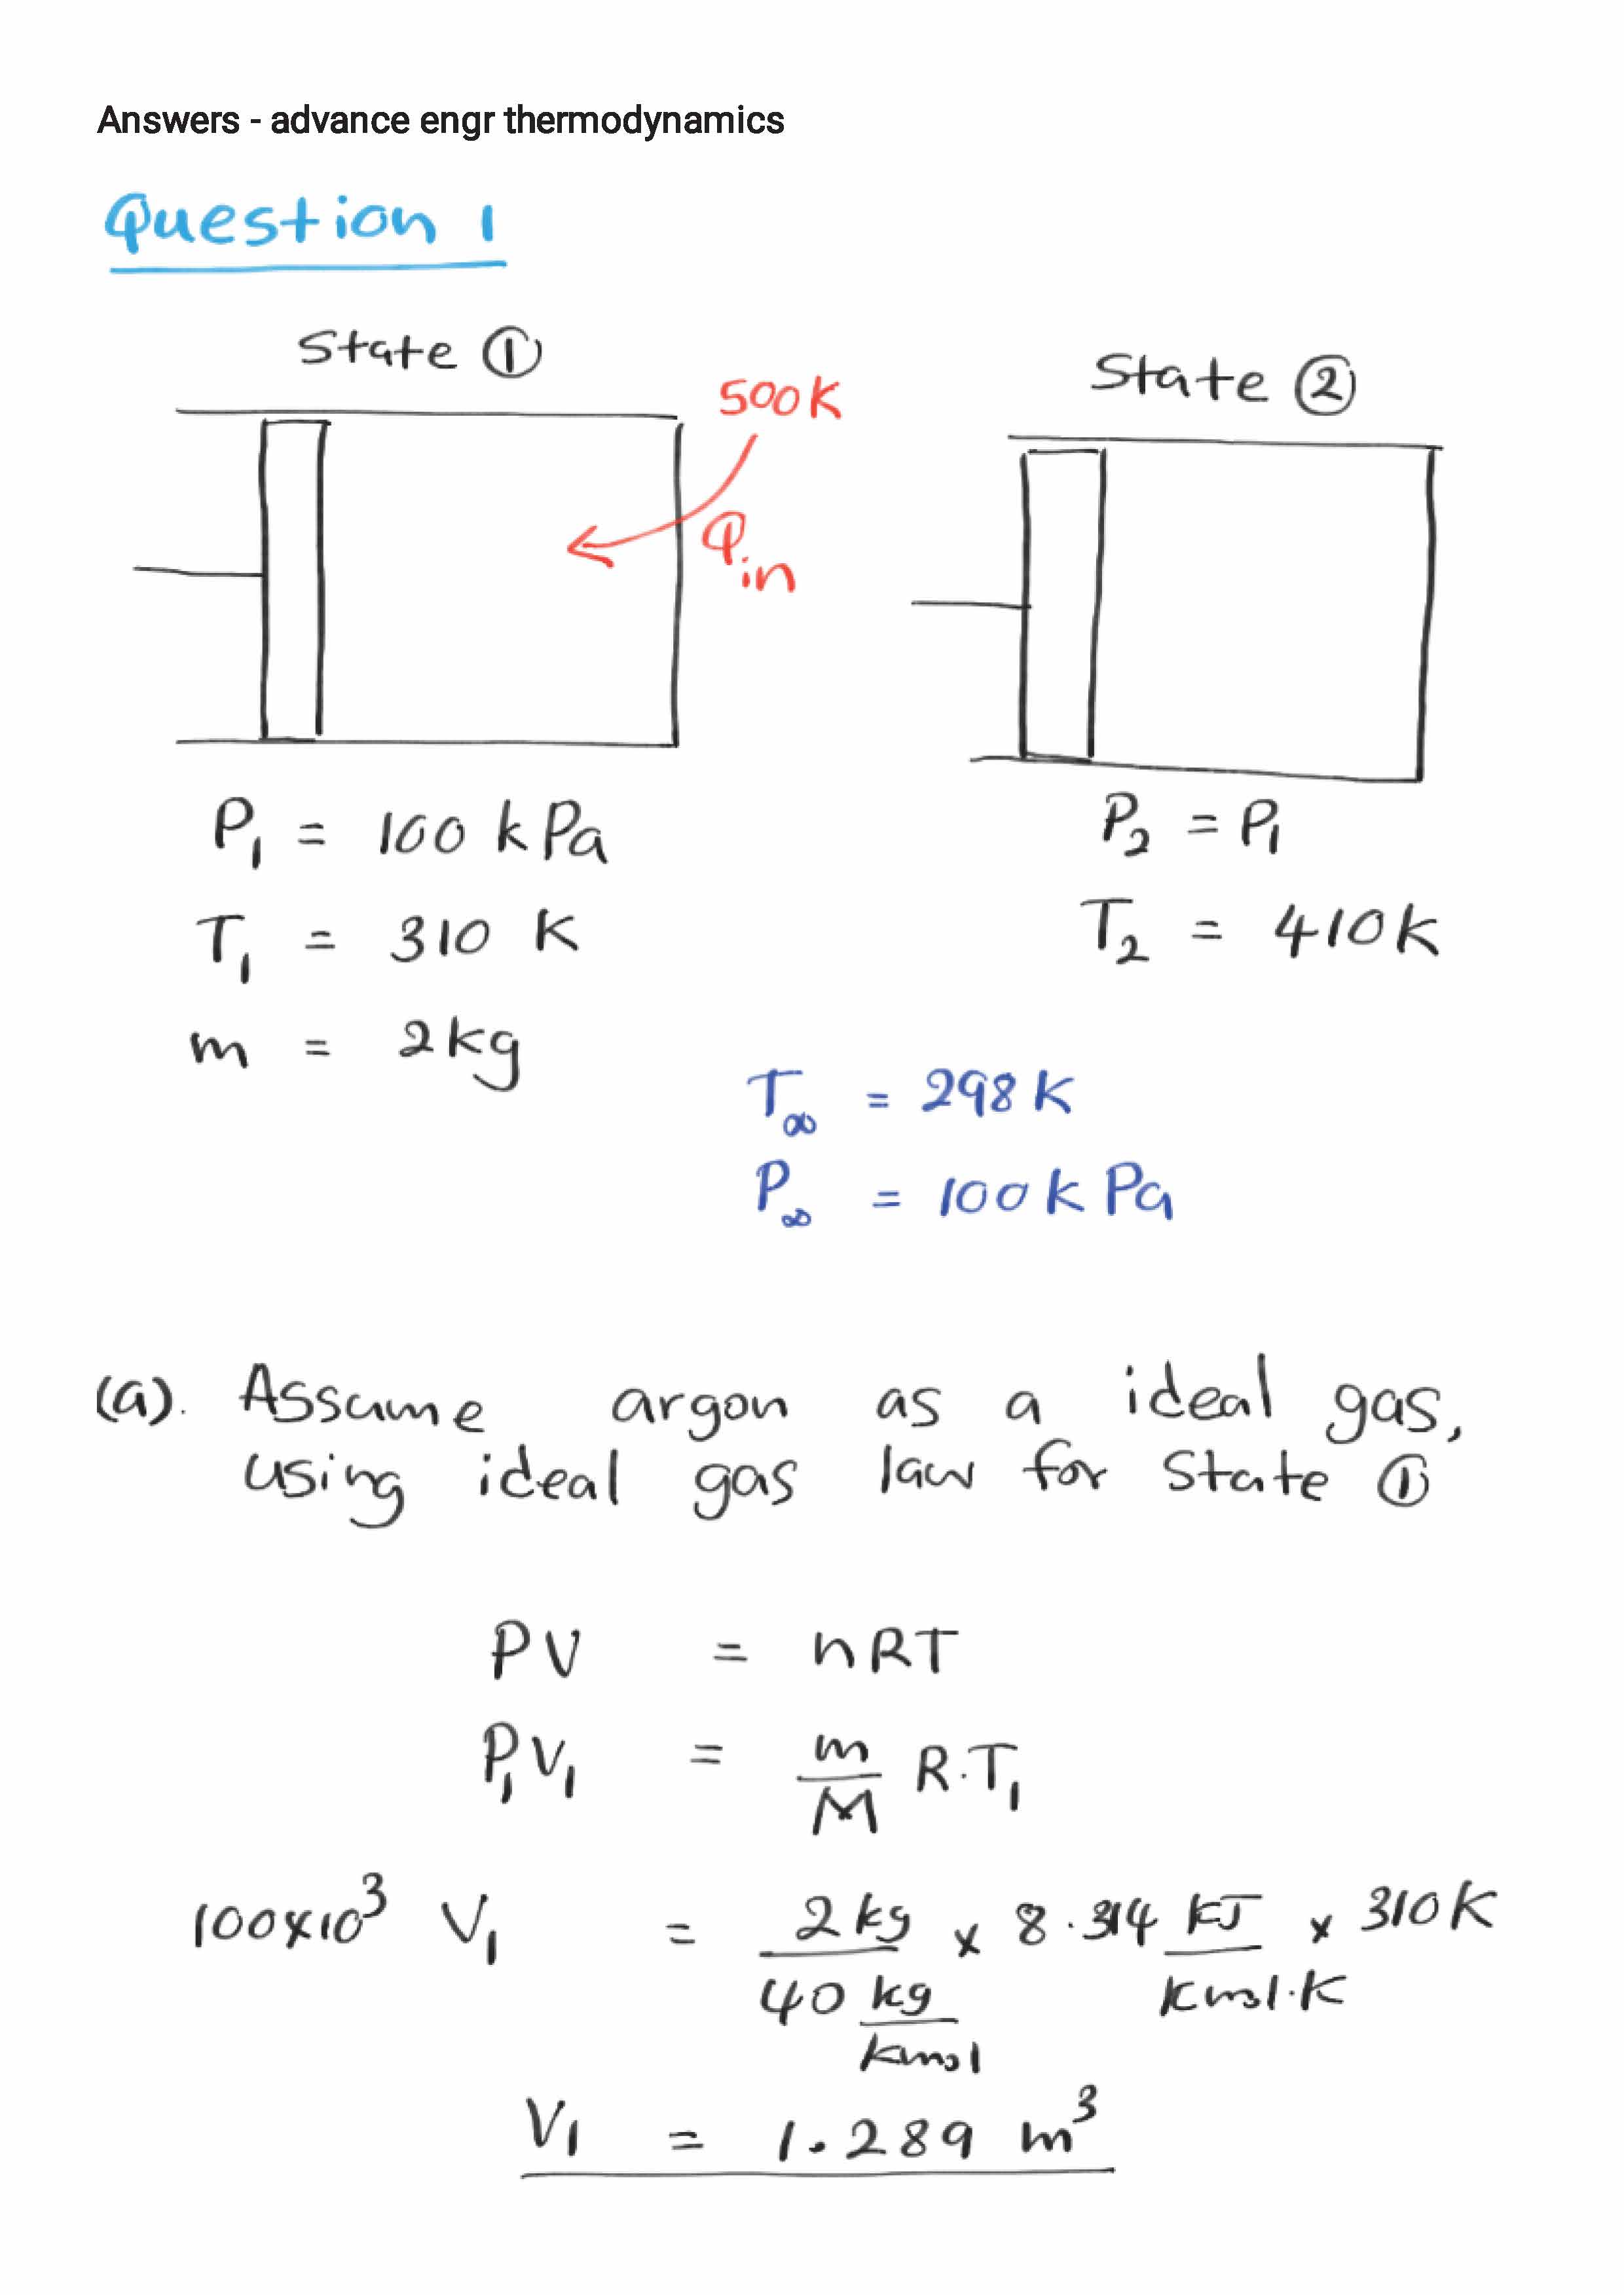 Answers - advance engr thermodynamics
Question 1
State ①
State ②
500K
Qin
P₁ = 100 kPa
P₂ = P₁
T₁ = 310 K
T₂ = 410K
m = 2kg
T∞ = 298K
P∞ = 100kPa
(a). Assume argon as a ideal gas,
using ideal gas law for state ①
PV = nRT
P₁V₁ = m/M R.T₁
100x10³ V₁ = 2kg/40 kg/kmol x 8.314 kJ/kmol.K x 310K
V₁ = 1.289 m³